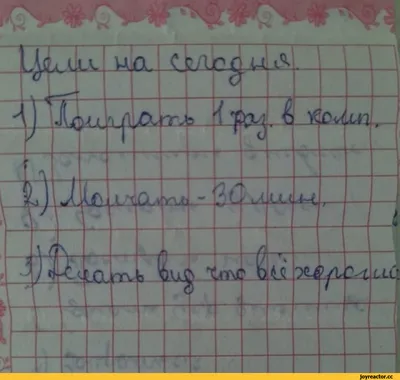 Цели на сегодня.
1) Поиграть 1 раз. в комп.
2) Молчать - 30 мин.
3) Делать вид что всё хорошо
joyreactor.cc